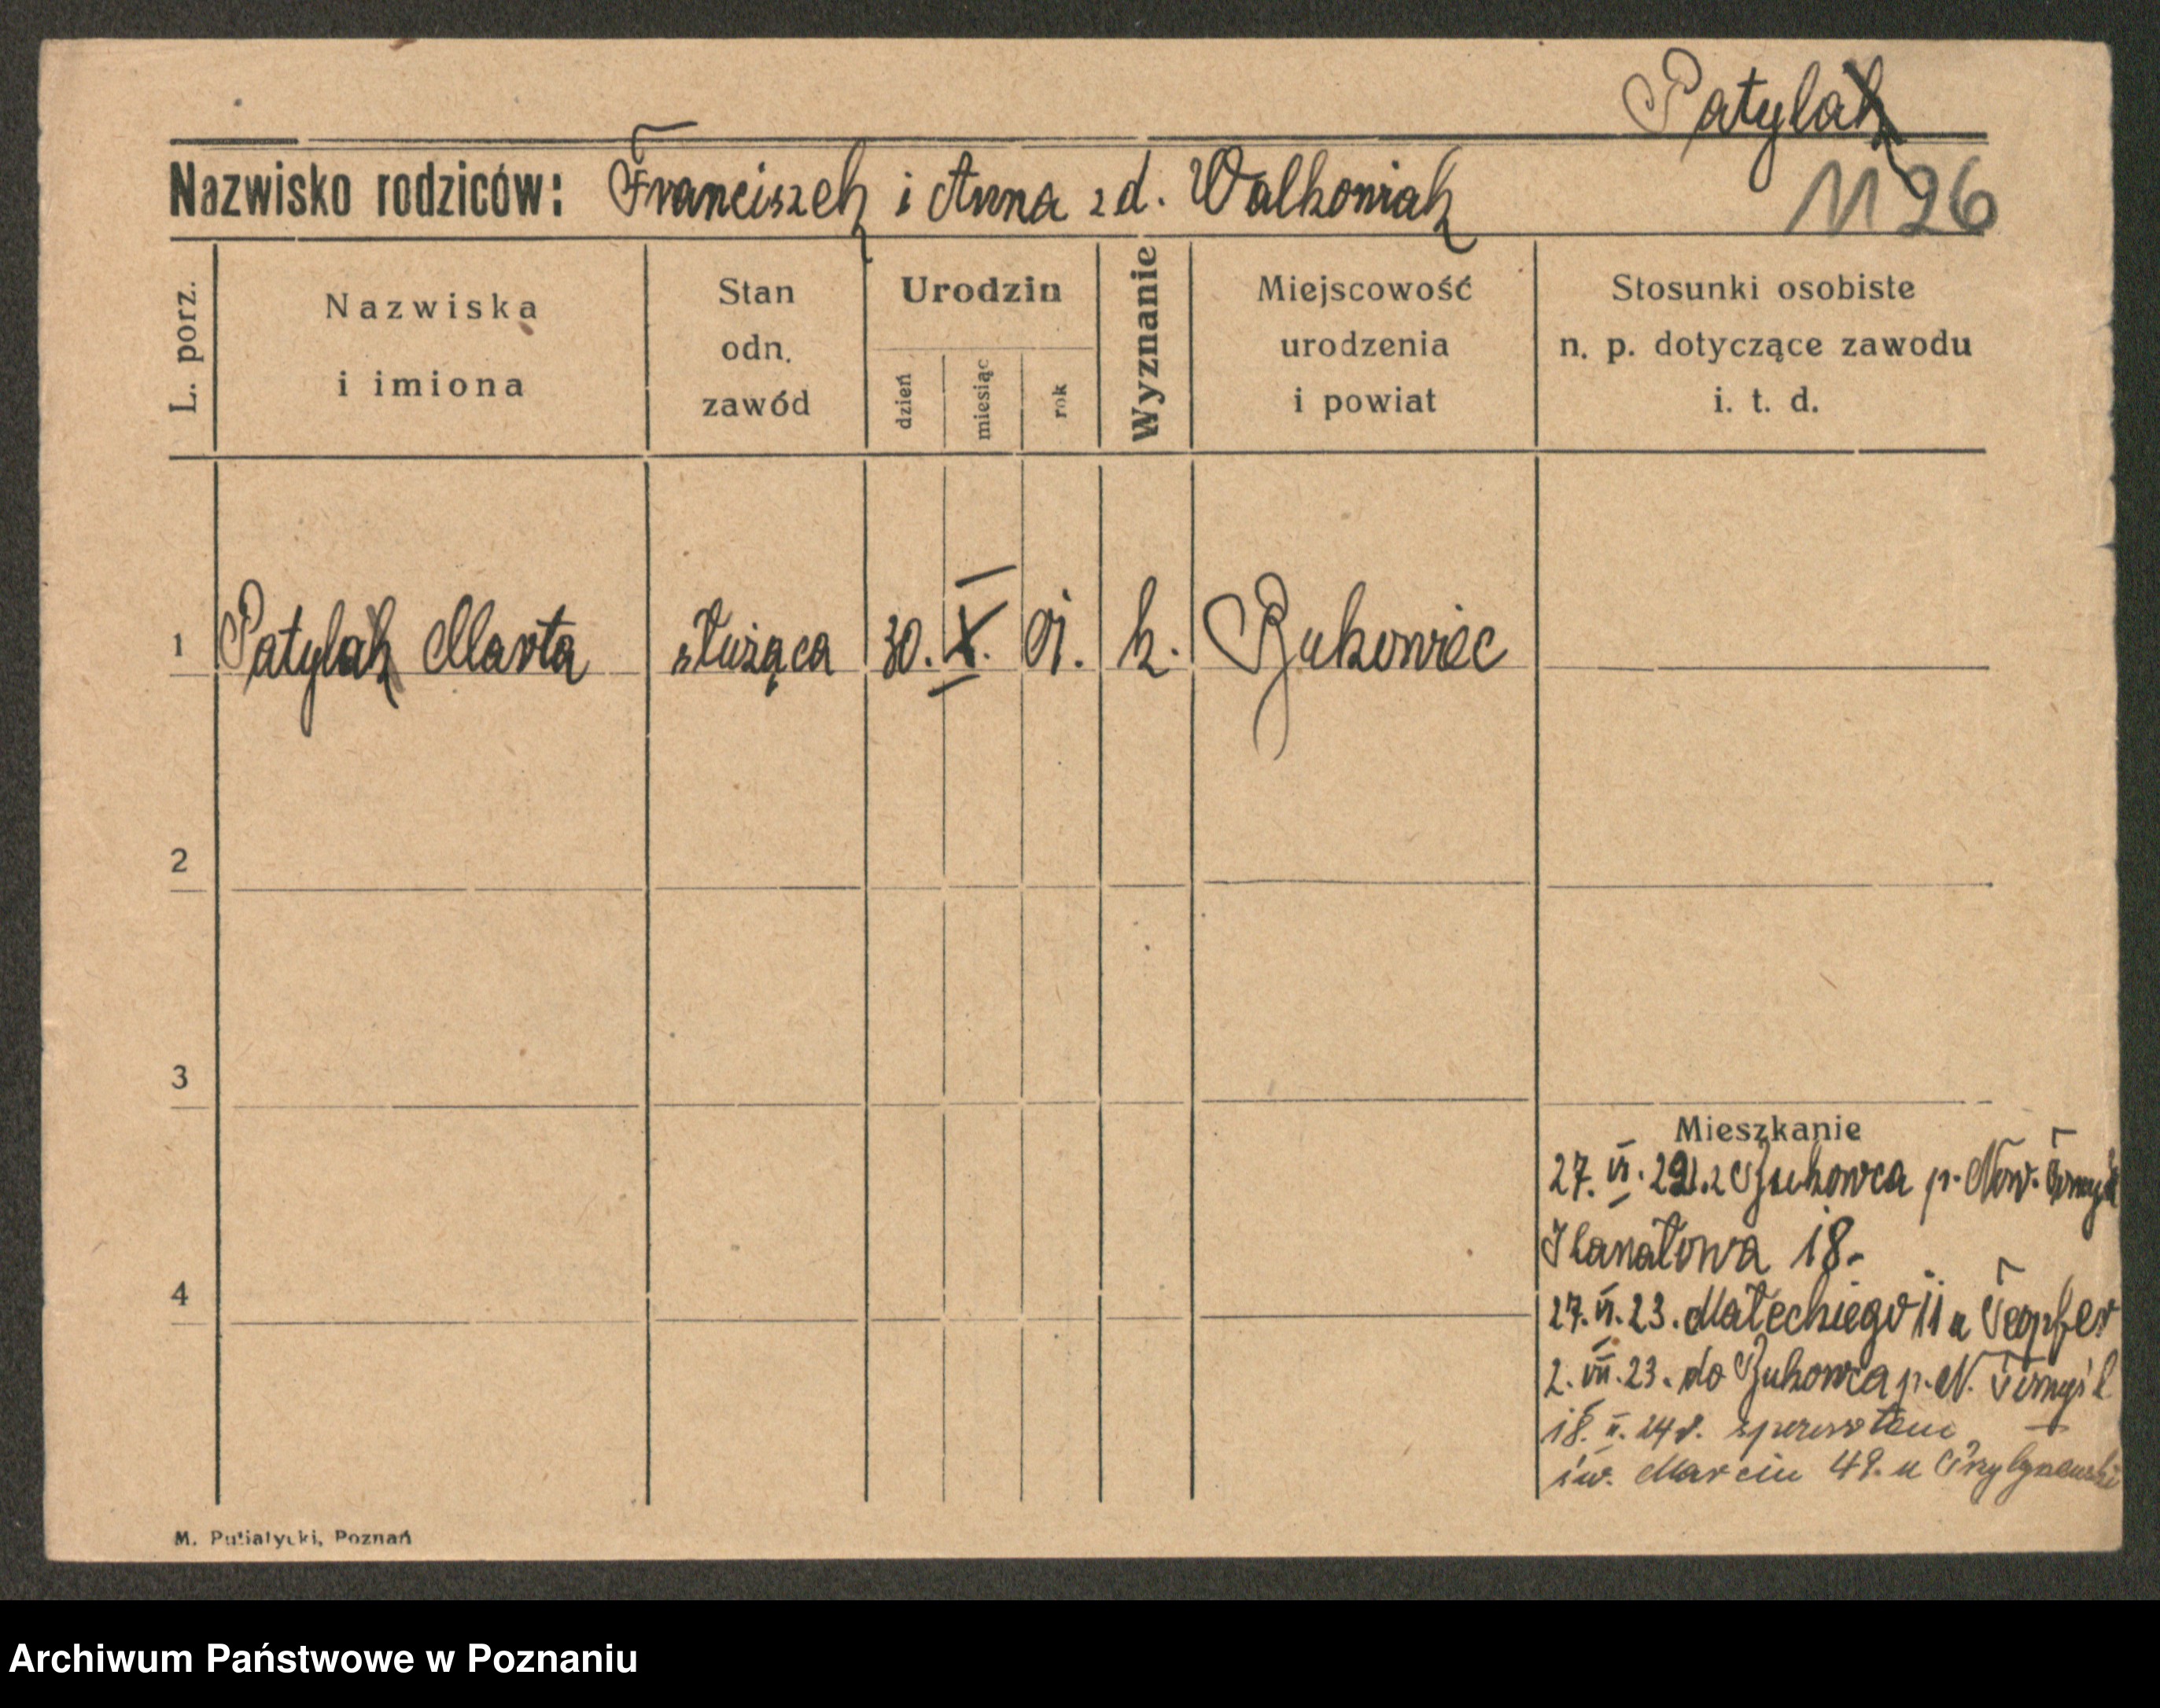 Patylak
Nazwisko rodziców: Franciszek i Anna z d. Walkowiak
1126
L. porz.
Nazwiska
i imiona
Stan
odn.
zawód
Urodzin
dzień
miesiąc
rok
Wyznanie
Miejscowość
urodzenia
i powiat
Stosunki osobiste
n. p. dotyczące zawodu
i. t. d.
1 Patylak Marta służąca 30. X. 01. k. Bukowiec
2
3
Mieszkanie
27. VI. 22. z Bukowca p. Now. Tomyśl
18.
4
27. VI. 23. Małeckiego 11 u Toepfer
2. VII. 23. do Bukowca p. N. Tomyśl
18. II. 24 r. z powrotem
św. Marcin 49. u
M. Putiatycki, Poznań
Archiwum Państwowe w Poznaniu